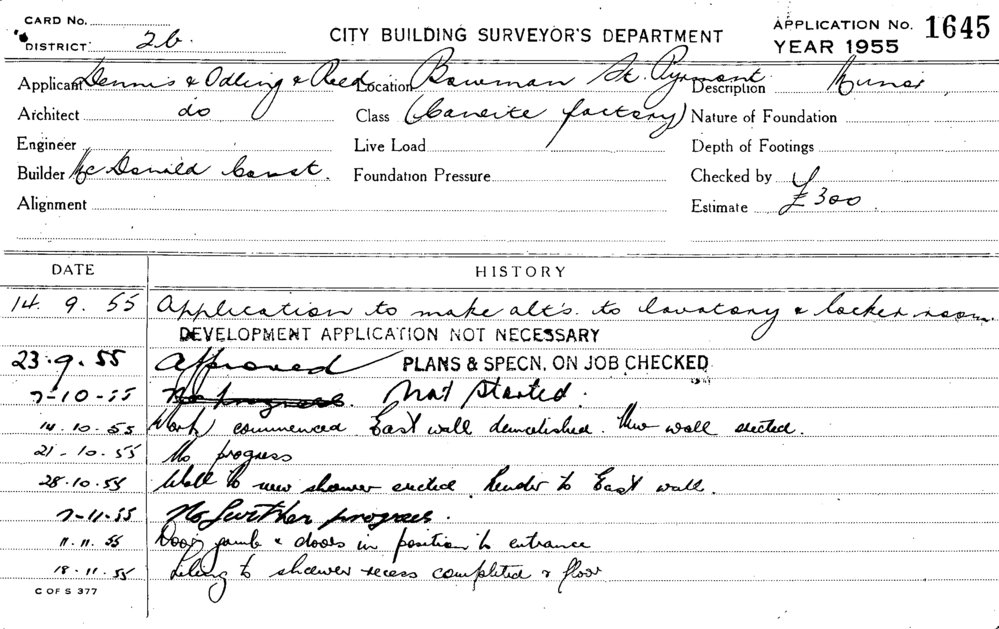 CARD No.
DISTRICT 2b.
CITY BUILDING SURVEYOR'S DEPARTMENT
APPLICATION No. 1645
YEAR 1955
Applicant Dennis & Odling & Reed Location Bowman St. Pyrmont Description Minor
Architect do Class (Caneite factory) Nature of Foundation
Engineer Live Load Depth of Footings
Builder McDonald Const. Foundation Pressure Checked by
Alignment Estimate £300
DATE HISTORY
14. 9. 55 Application to make alt's. to lavatory & locker room.
DEVELOPMENT APPLICATION NOT NECESSARY
23.9.55 Approved PLANS & SPECN. ON JOB CHECKED
7-10-55 No progress. Not started.
14.10.55 Work commenced. East wall demolished. New wall erected.
21-10.55 No progress
28.10.55 Wall to new shower erected. Render to East wall.
7-11-55 No further progress.
11.11.55 Door jamb & doors in position to entrance
18.11.55 Tiling to shower recess completed & floor
C OF S 377